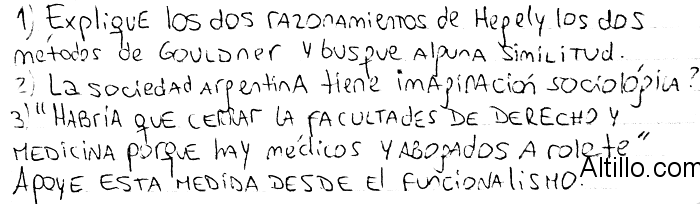 1) EXPLIQUE los dos razonamientos de Hegel y los dos
métodos de GOULDNER y busque alguna similitud.
2) La sociedad argentina tiene imaginación sociológica?
3) "HABRÍA QUE CERRAR LA FACULTADES DE DERECHO Y
MEDICINA porque hay médicos Y ABOGADOS A rolete"
Altillo.com
APOYE ESTA MEDIDA DESDE El funcionalismo.